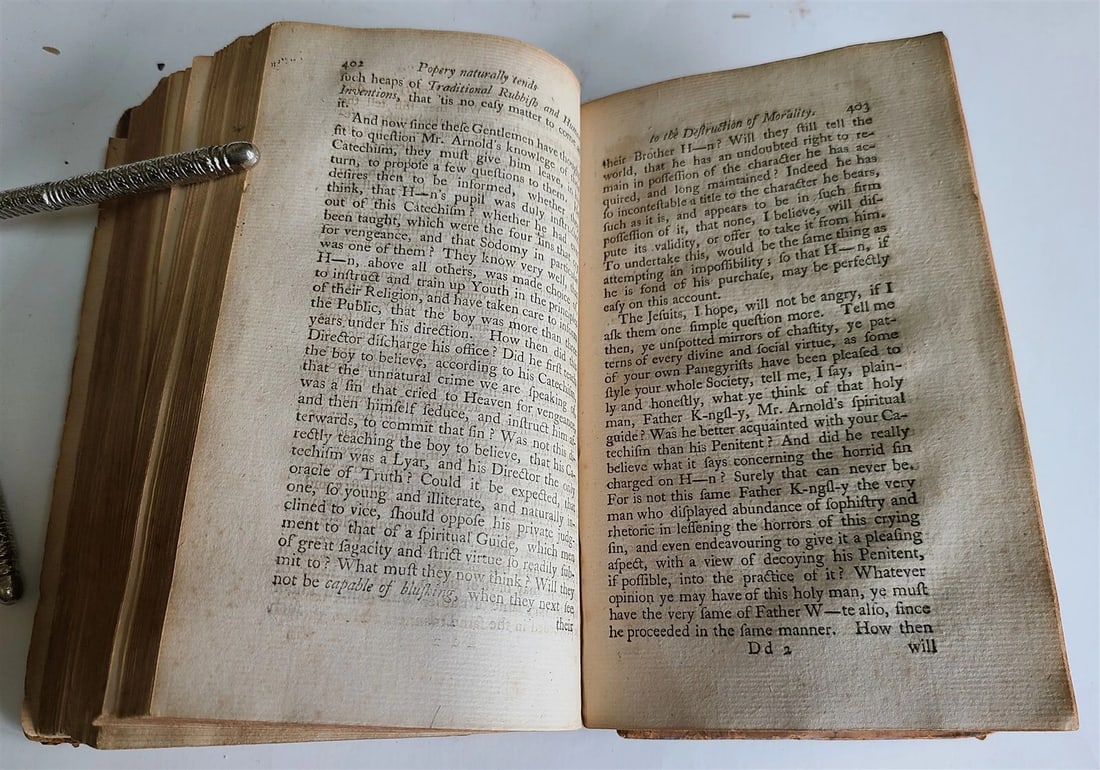 402
Popery naturally tends
ſuch heaps of Traditional Rubbiſh and
Inventions, that 'tis no eaſy matter to
it.
And now ſince theſe Gentlemen have
fit to queſtion Mr. Arnold's knowlege of
Catechiſm, they muſt give him leave, in
turn, to propoſe a few queſtions to them.
deſires then to be informed, whether
think, that H—n's pupil was duly
out of this Catechiſm? whether he had
been taught, which were the four ſins that
for vengeance, and that Sodomy in
was one of them? They know very well,
H—n, above all others, was made choice of
to inſtruct and train up Youth in the
of their Religion, and have taken care to
the Public, that the boy was more than
years under his direction. How then did
Director diſcharge his office? Did he firſt
the boy to believe, according to his Catechiſm
that the unnatural crime we are ſpeaking of
was a ſin that cried to Heaven for vengeance
and then himſelf ſeduce, and inſtruct him af-
terwards, to commit that ſin? Was not this di-
rectly teaching the boy to believe, that his Ca-
techiſm was a Lyar, and his Director the only
oracle of Truth? Could it be expected, that
one, ſo young and illiterate, and naturally in-
clined to vice, ſhould oppoſe his private judg-
ment to that of a ſpiritual Guide, which men
of great ſagacity and ſtrict virtue ſo readily ſub-
mit to? What muſt they now think? Will they
not be capable of bluſhing, when they next ſee
their
to the Deſtruction of Morality. 403
their Brother H—n? Will they ſtill tell the
world, that he has an undoubted right to re-
main in poſſeſſion of the character he has ac-
quired, and long maintained? Indeed he has
ſo inconteſtable a title to the character he bears,
ſuch as it is, and appears to be in ſuch firm
poſſeſſion of it, that none, I believe, will diſ-
pute its validity, or offer to take it from him.
To undertake this, would be the ſame thing as
attempting an impoſſibility; ſo that H—n, if
he is fond of his purchaſe, may be perfectly
eaſy on this account.
The Jeſuits, I hope, will not be angry, if I
aſk them one ſimple queſtion more. Tell me
then, ye unſpotted mirrors of chaſtity, ye pat-
terns of every divine and ſocial virtue, as ſome
of your own Panegyriſts have been pleaſed to
ſtyle your whole Society, tell me, I ſay, plain-
ly and honeſtly, what ye think of that holy
man, Father K-ngſl-y, Mr. Arnold's ſpiritual
guide? Was he better acquainted with your Ca-
techiſm than his Penitent? And did he really
believe what it ſays concerning the horrid ſin
charged on H—n? Surely that can never be.
For is not this ſame Father K-ngſl-y the very
man who diſplayed abundance of ſophiſtry and
rhetoric in leſſening the horrors of this crying
ſin, and even endeavouring to give it a pleaſing
aſpect, with a view of decoying his Penitent,
if poſſible, into the practice of it? Whatever
opinion ye may have of this holy man, ye muſt
have the very ſame of Father W—te alſo, ſince
he proceeded in the ſame manner. How then
Dd 2 will